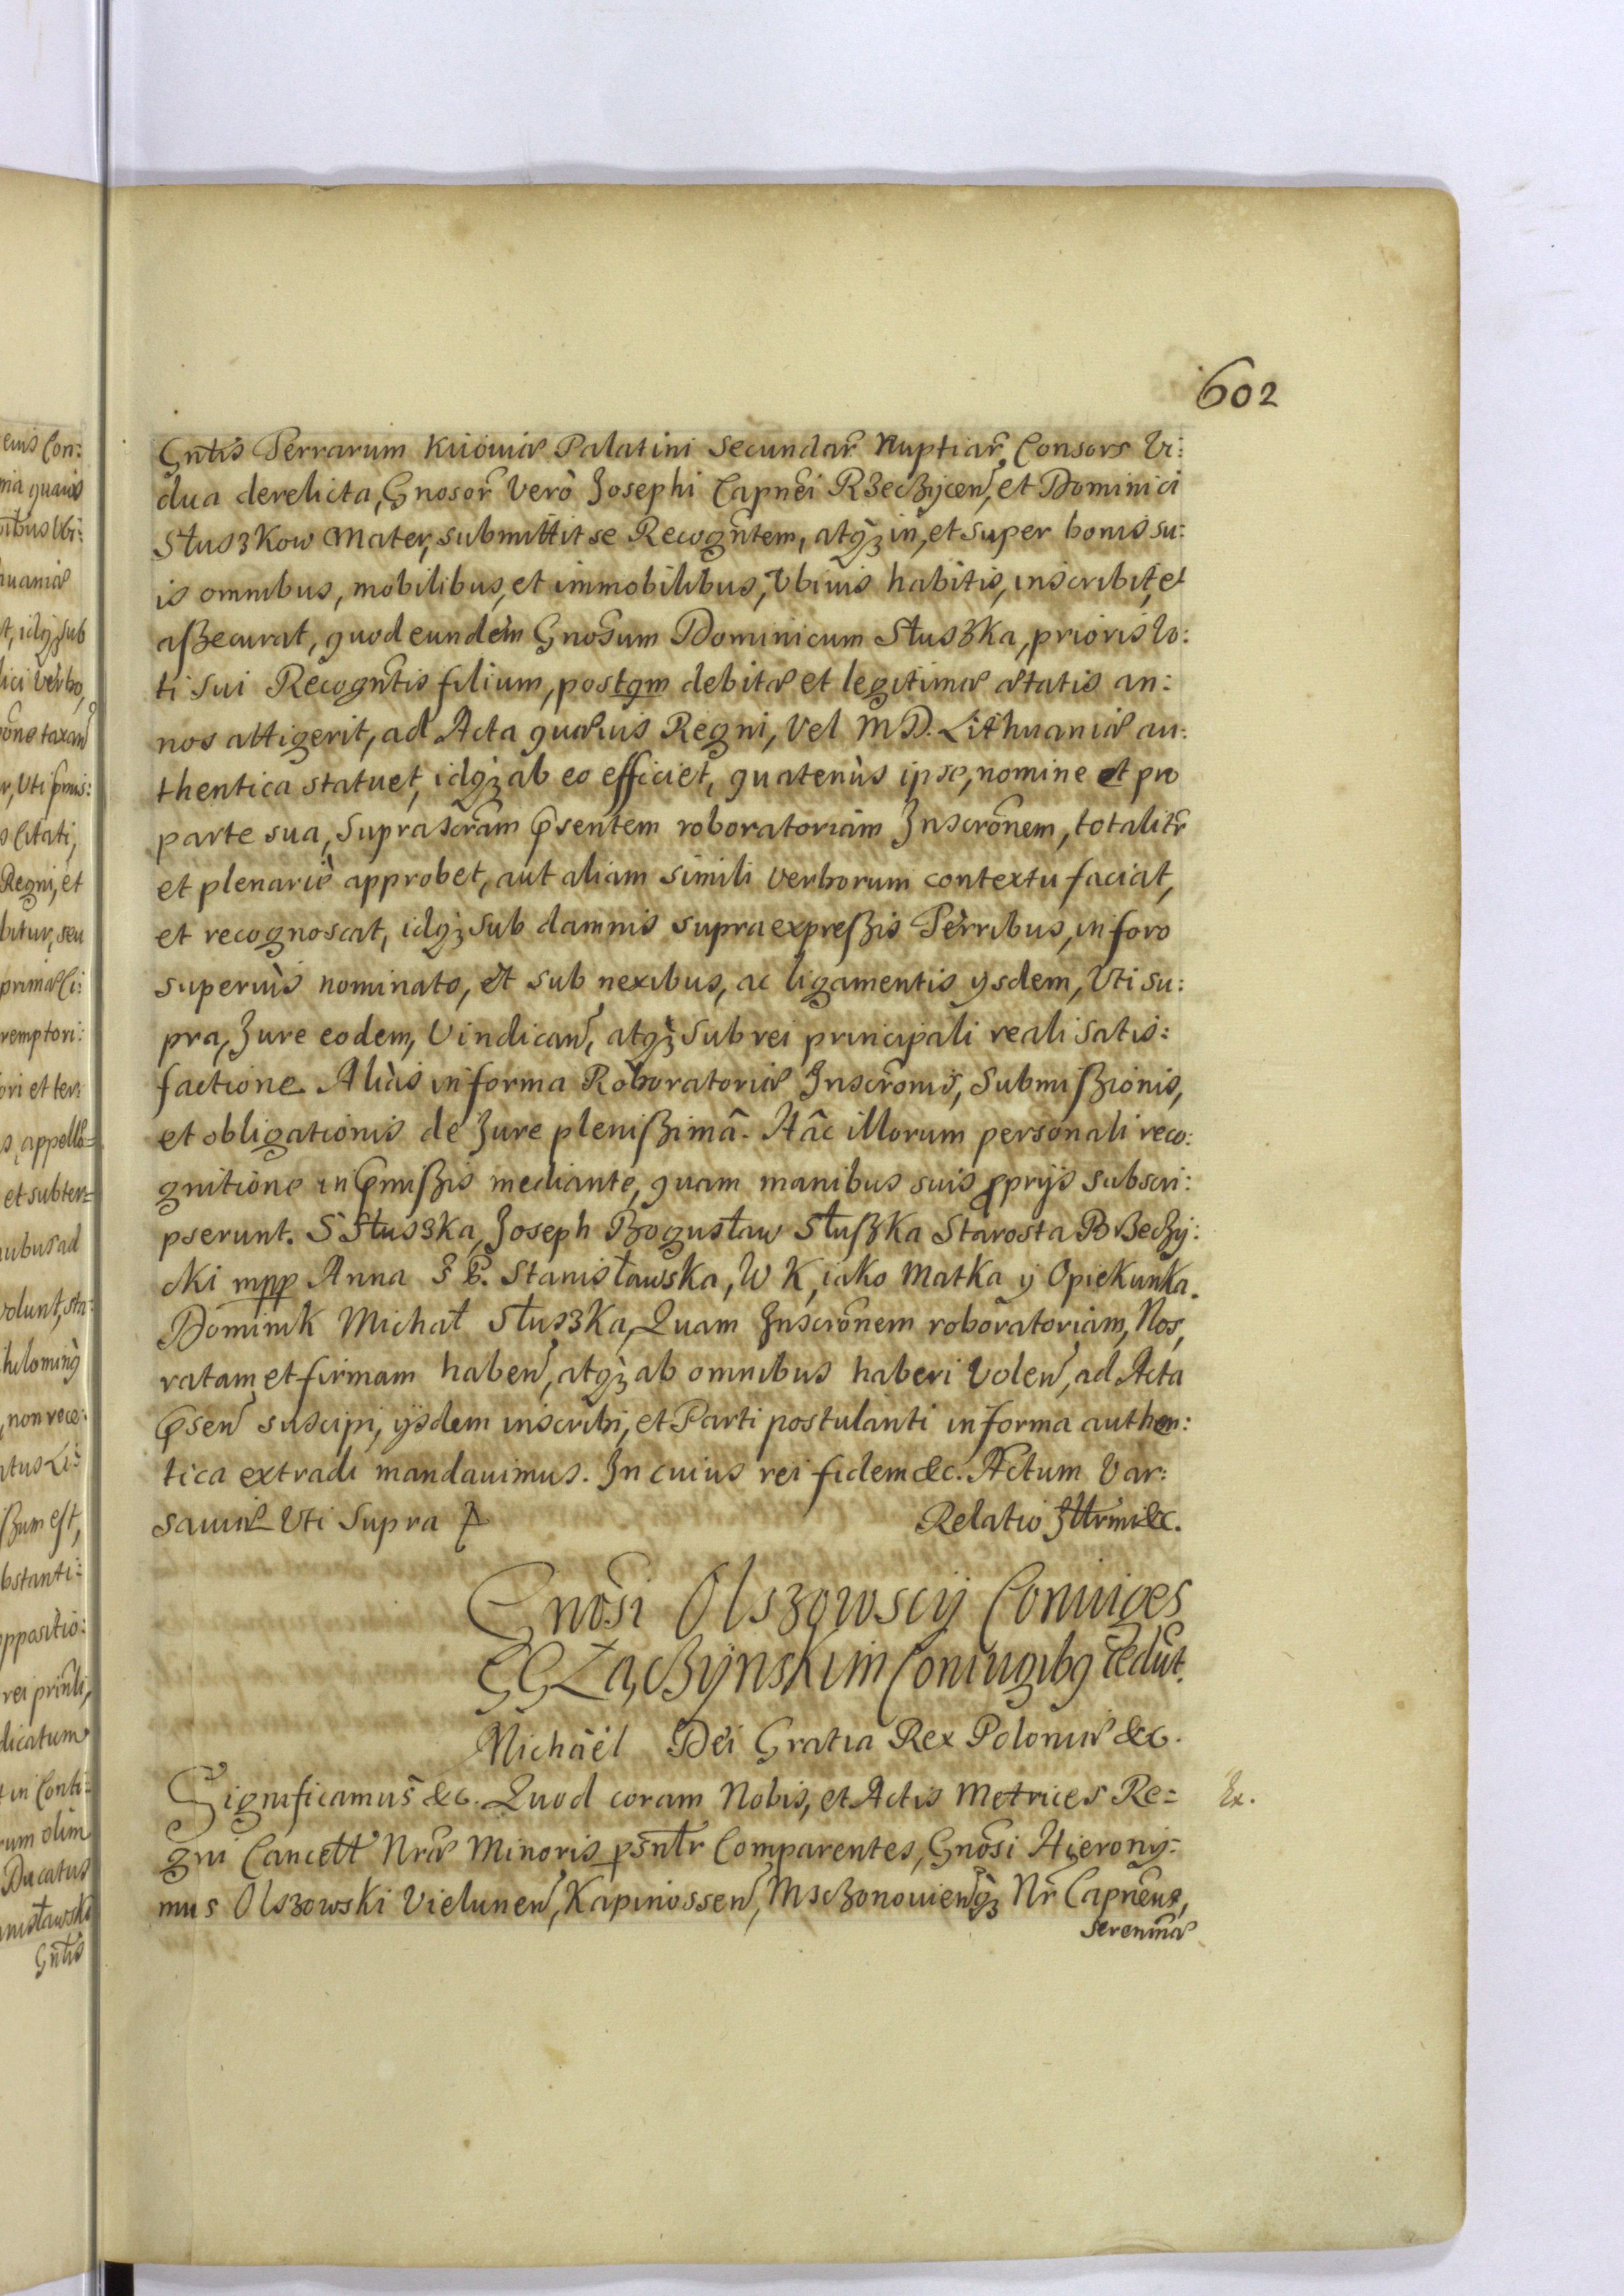 602
Gnt̃is Terrarum Kiioviæ Palatini Secundar̃ Nuptiar̃, Consors Vi:
dua derelicta, Gnosor̃ Verò Josephi Capnẽi Rzeczycen̄, et Dominici
Słuszkow Mater, submittit se Recogñtem, atq̀ȝ in, et super bonis su:
is omnibus, mobilibus, et immobilibus, Vbivis habitis, inscribit, et
aßecurat, quod eundem Gnõsum Dominicum Słuszka, prioris Vo:
ti sui Recogñtis filium, postqm debitæ et legitimæ ætatis an:
nos attigerit, ad Acta quævis Regni, Vel M D. Lithuaniæ au:
thentica statuet, idq̀ȝ ab eo efficiet, quatenùs ipse, nomine et pro
parte sua, Suprascr̃am p̃sentem roboratoriam Inscrõnem, totalitr̃
et plenariè approbet, aut aliam simili verborum contextu faciat,
et recognoscat, idq̀ȝ sub damnis supraexpreßis Terribus, in foro
superiùs nominato, et sub nexibus, ac ligamentis ysdem, Vti su:
pra, Jure eodem, Vindican̄, atq̀ȝ sub rei principali reali satis:
factione. Aliàs in forma Roboratoriæ Inscrõnis, Submißionis,
et obligationis de Jure plenißimâ. Hâc illorum personali reco:
gnitione in p̃mißis mediante, quam manibus suis ꝓprijs subscri:
pserunt. S Słuszka, Joseph Bogusław Słußka Starosta Rzeczy:
cki mpp Anna Z P. Stanisławska, W K, iako Matka y Opiekunka.
Dominik Michał Słuszka, Quam Inscrõnem roboratoriam, Nos,
ratam, et firmam haben̄, atq̀ȝ ab omnibus haberi Volen̄, ad Acta
p̃sen̄ suscipi, ijsdem inscribi, et Parti postulanti in forma authen:
tica extradi mandavimus. In cuius rei fidem &c. Actum Var:
saviæ Vti Supra
Relatio Illr̃mi &c.
Gnõsi Olszowscij Coniuges
GG Zaczynskim Coniugibq cedũt.
Michàël Dei Gratia Rex Poloniæ &c.
Significamus &c. Quod coram Nobis, et Actis Metrices Re=
Ex.
gni Cancełł Nr̃æ Minoris psñtr Comparentes, Gnõsi Hieronij:
mus Olszowski Vielunen̄, Kapinossen̄, Msczonovien̄q̀ȝ Nr̃ Capnẽus,
Sereniñæ